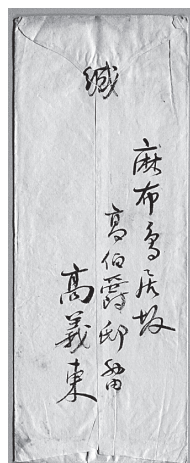 緘
麻布鳥居坂
高伯爵邸
高義東